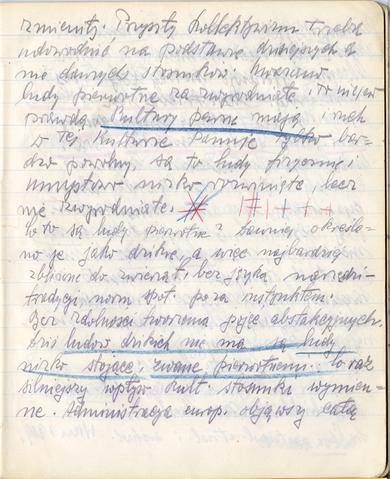 zmienił. Przyszły Kollektywizm trzeba
udowodnić na podstawie dzisiejszych a
nie dawnych stosunków. Uważano
ludy pierwotne za zwyrodniałe. To nie jest
prawdą. Kultury pewne mają i ruch
w tej Kulturze panuje tylko bar-
dzo powolny, są to ludy fizycznie i
umysłowo nisko rozwinięte, lecz
nie zwyrodniałe.
Co to są ludy pierwotne? Dawniej określa-
no je jako dzikie, a więc najbardziej
zbliżone do zwierząt, bez języka narzędzi
tradycji, norm społ. poza instynktem.
Bez zdolności tworzenia pojęć abstrakcyjnych.
Dziś ludów dzikich nie ma, są ludy
nisko stojące, zwane pierwotnemi. Coraz
silniejszy wpływ kult. stosunki wymien-
ne. Administracja europ. objąwszy całą